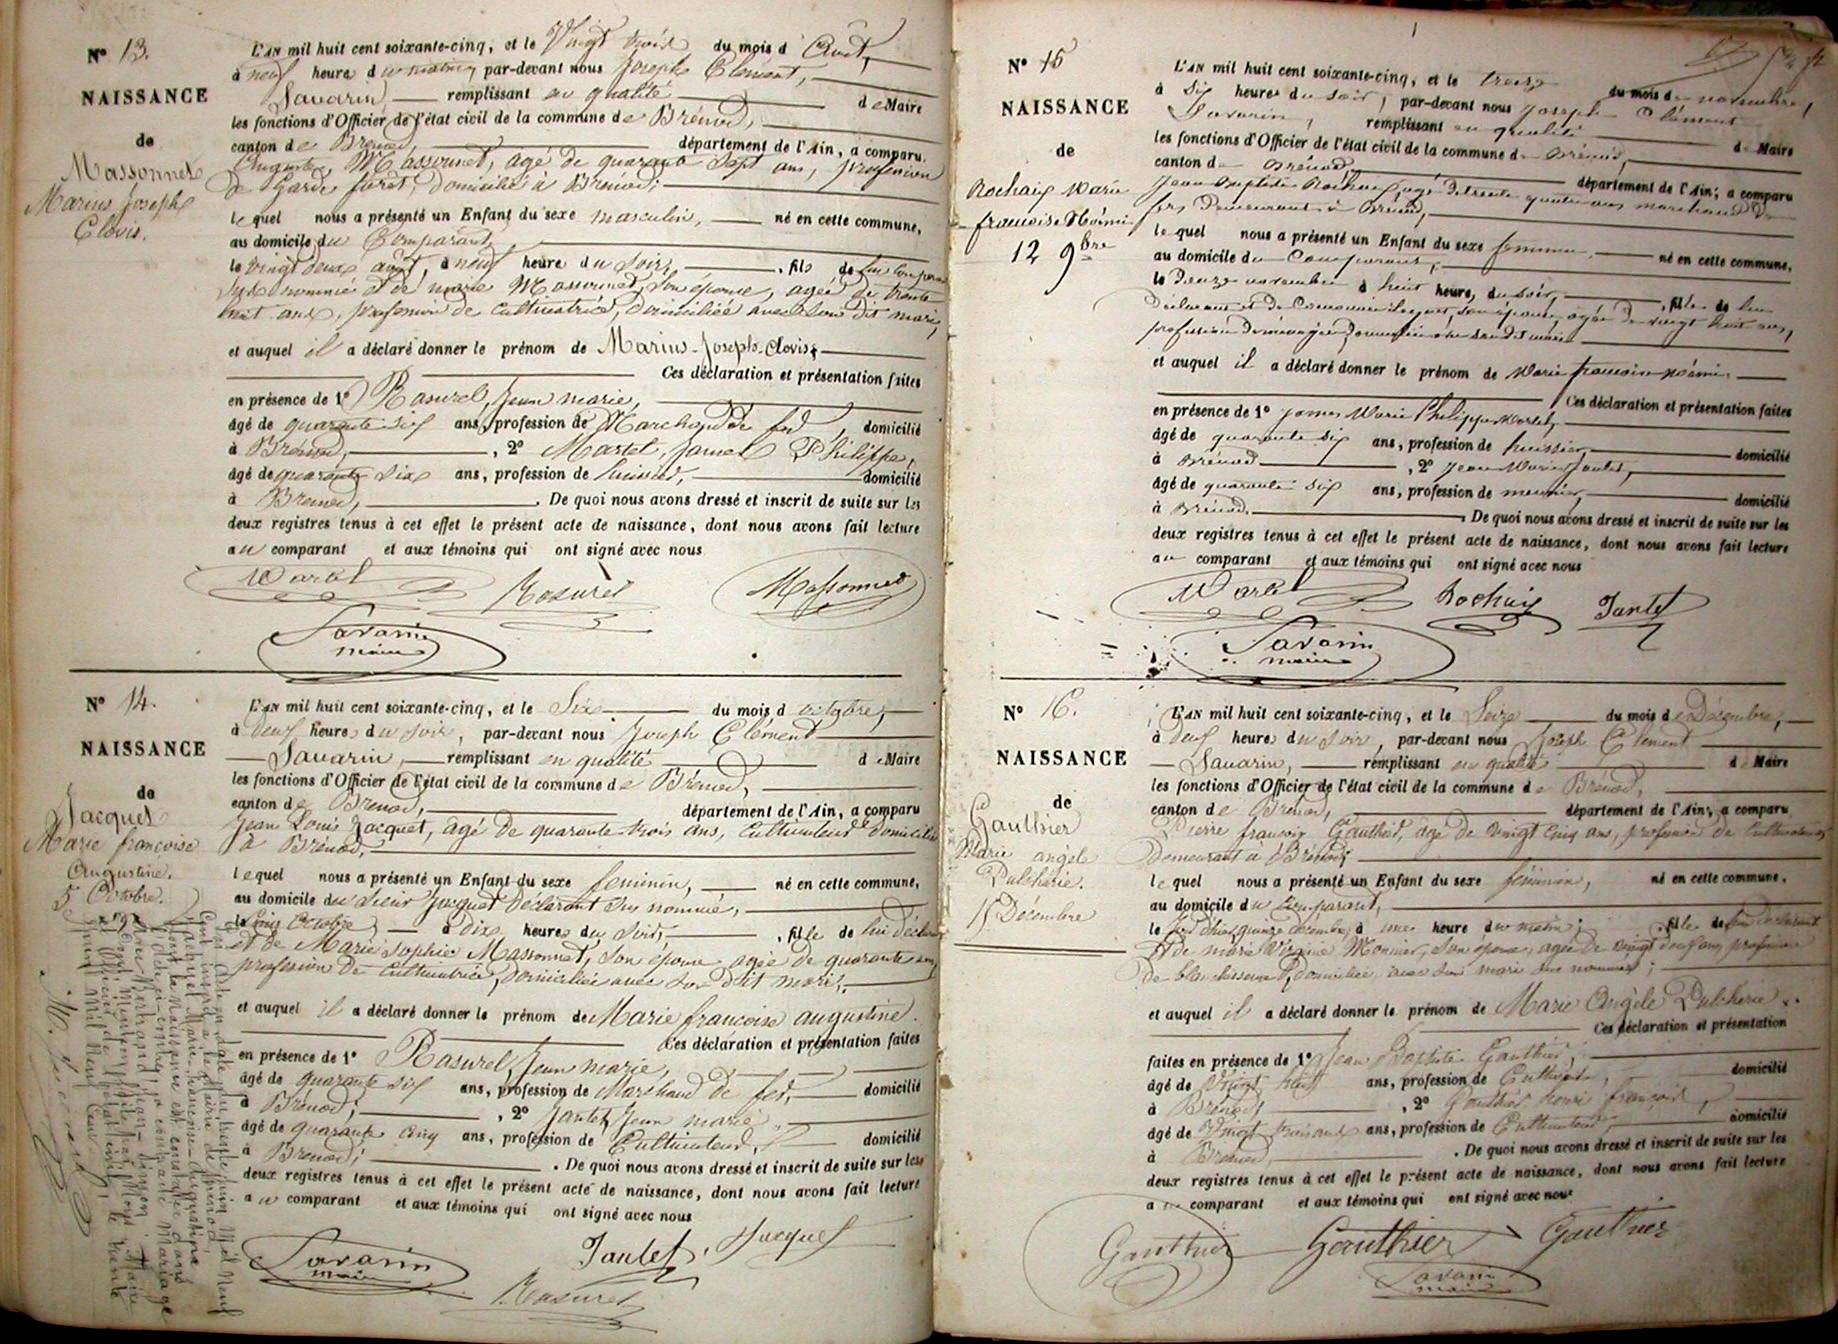 Nº 13.
NAISSANCE
de
Massonnet
Marius Joseph
Clovis.
L'AN mil huit cent soixante-cinq, et le Vingt trois du mois d'Août,
à neuf heure du matin, par-devant nous Joseph Clément,
Savarin remplissant en qualité de Maire
les fonctions d'Officier de l'état civil de la commune de Brénod,
canton de Brénod, département de l'Ain, a comparu
Auguste Massonnet, agé de quarante sept ans, profession
de Garde forêt, domicilié à Brénod;
lequel nous a présenté un Enfant du sexe masculin, né en cette commune,
au domicile du Comparant,
le vingt deux août, à neuf heure du soir, fils de lui Comparant
sus nommé et de marie Massonnet, son épouse, agée de trente
huit ans, profession de cultivatrice, domiciliée avec son dit mari,
et auquel il a déclaré donner le prénom de Marius-Joseph-Clovis,
Ces déclaration et présentation faites
en présence de 1º Rasurel, Jean marie,
âgé de quarante six ans, profession de Marchand de fer, domicilié
à Brénod, , 2º Martel, James Philippe,
âgé de quarante six ans, profession de huissier, domicilié
à Brénod, . De quoi nous avons dressé et inscrit de suite sur les
deux registres tenus à cet effet le présent acte de naissance, dont nous avons fait lecture
au comparant et aux témoins qui ont signé avec nous
Martel Rasurel Massonnet
Savarin
maire
Nº 14.
NAISSANCE
de
Jacquet
Marie françoise
Augustine.
5 Octobre.
L'AN mil huit cent soixante-cinq, et le Six du mois d'octobre,
à Deux heures du soir, par-devant nous Joseph Clément
Savarin, remplissant en qualité de Maire
les fonctions d'Officier de l'état civil de la commune de Brénod,
canton de Brénod, département de l'Ain, a comparu
Jean Louis Jacquet, agé de quarante trois ans, Cultivateur domicilié
à Brénod,
lequel nous a présenté un Enfant du sexe feminin, né en cette commune,
au domicile du sieur Jacquet Déclarant sus nommé,
le Cinq Octobre, à dix heures du soir, , fille de lui déclarant
et de Marie Sophie Massonnet, son épouse agée de quarante ans,
profession de Cultivatrice, domiciliée avec son dit mari,
et auquel il a déclaré donner le prénom de Marie françoise augustine.
Ces déclaration et présentation faites
en présence de 1º Rasurel, Jean marie,
âgé de quarante six ans, profession de Marchand de fer, domicilié
à Brénod; , 2º Jantet, Jean marie
âgé de quarante cinq ans, profession de Cultivateur, domicilié
à Brénod; . De quoi nous avons dressé et inscrit de suite sur les
deux registres tenus à cet effet le présent acte de naissance, dont nous avons fait lecture
au comparant et aux témoins qui ont signé avec nous
Savarin
maire
Jantet, Jacquet
Rasurel
Nº 15
NAISSANCE
de
Rochaix Marie
françoise Noémie
12 9bre
L'AN mil huit cent soixante-cinq, et le treize du mois de novembre,
à Six heures du soir, par-devant nous Joseph Clément
Savarin, remplissant en qualité de Maire
les fonctions d'Officier de l'état civil de la commune de Brénod,
canton de Brénod, département de l'Ain, a comparu
Jean Baptiste Rochaix, agé de trente quatre ans marchand de
fer, Demeurant à Brénod,
lequel nous a présenté un Enfant du sexe féminin né en cette commune,
au domicile du Comparant,
le Douze novembre à huit heure, du soir, , fille de lui
Déclarant et de son épouse, agée de vingt huit ans,
profession de ménagère Domiciliée avec son dit mari
et auquel il a déclaré donner le prénom de Marie françoise Noémie.
Ces déclaration et présentation faites
en présence de 1º James Marie Philippe Martel,
âgé de quarante six ans, profession de huissier, domicilié
à Brénod , 2º Jean Marie Jantet,
âgé de quarante six ans, profession de meunier, domicilié
à Brénod. . De quoi nous avons dressé et inscrit de suite sur les
deux registres tenus à cet effet le présent acte de naissance, dont nous avons fait lecture
au comparant et aux témoins qui ont signé avec nous
Martel Rochaix Jantet
Savarin
maire
Nº 16.
NAISSANCE
de
Gauthier
Marie angèle
Pulchérie.
15 Décembre
L'AN mil huit cent soixante-cinq, et le Seize du mois de Décembre,
à Deux heures du soir, par-devant nous Joseph Clément
Savarin, remplissant en qualité de Maire
les fonctions d'Officier de l'état civil de la commune de Brénod,
canton de Brénod, département de l'Ain, a comparu
Pierre françois Gauthier, agé de vingt cinq ans, profession de Cultivateur,
demeurant à Brénod;
lequel nous a présenté un Enfant du sexe féminin, né en cette commune,
au domicile du Comparant,
le jour d'hier quinze décembre, à une heure du matin; , fille de lui déclarant
et de marie Virginie Monnier, son épouse, agée de vingt deux ans, profession
de blanchisseuse, domiciliée avec son mari sus nommé;
et auquel il a déclaré donner le prénom de Marie Angèle Pulchérie.
Ces déclaration et présentation
faites en présence de 1º Jean Baptiste Gauthier,
âgé de Vingt neuf ans, profession de Cultivateur, domicilié
à Brénod, , 2º Gauthier françois,
âgé de Vingt ans, profession de Cultivateur, domicilié
à Brénod, . De quoi nous avons dressé et inscrit de suite sur les
deux registres tenus à cet effet le présent acte de naissance, dont nous avons fait lecture
au comparant et aux témoins qui ont signé avec nous
Gauthier Gauthier Gauthier
Savarin
maire